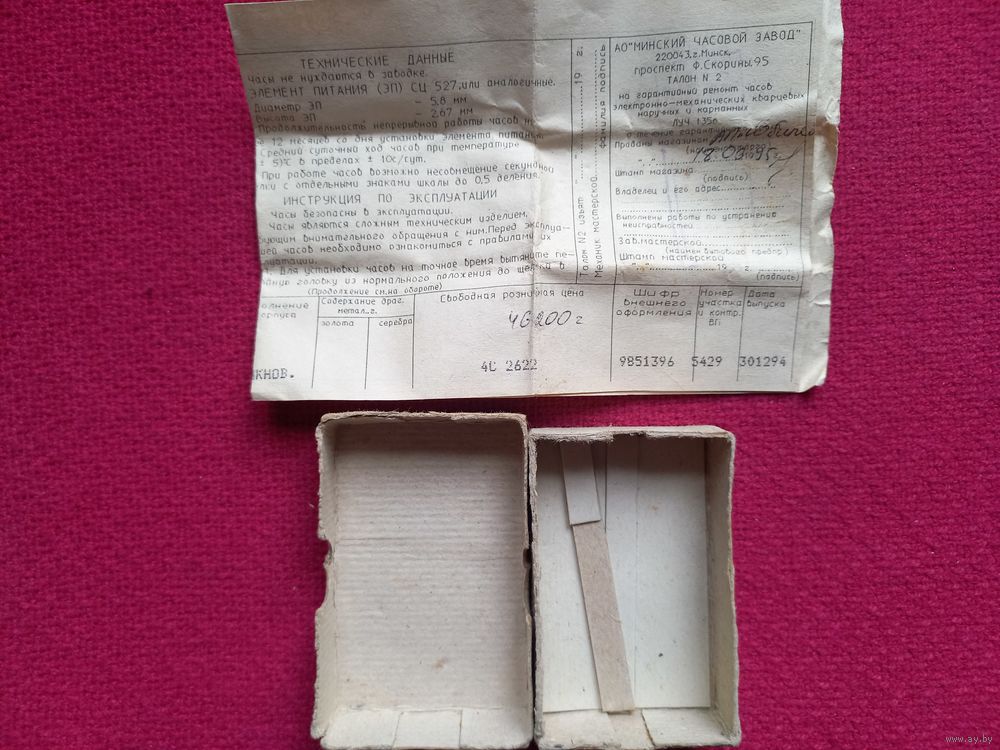 ТЕХНИЧЕСКИЕ ДАННЫЕ
Часы не нуждаются в заводке.
ЭЛЕМЕНТ ПИТАНИЯ (ЭП) СЦ 527,или аналогичные.
Диаметр ЭП – 5,8 мм
Высота ЭП – 2,67 мм
Продолжительность непрерывной работы часов
12 месяцев со дня установки элемента питания.
Средний суточный ход часов при температуре
5)°С в пределах ± 10с/сут.
При работе часов возможно несовмещение секундной
с отдельными знаками шкалы до 0,5 деления.
ИНСТРУКЦИЯ ПО ЭКСПЛУАТАЦИИ
Часы безопасны в эксплуатации.
Часы являются сложным техническим изделием,
внимательного обращения с ним.Перед эксплуа-
часов необходимо ознакомиться с правилами их
Для установки часов на точное время вытяните
головку из нормального положения до щелчка в
(Продолжение см.на обороте)
Содержание драг.
метал.,г.
золота серебра
Свободная розничная цена
46200
4С 2622
КНОВ.
Талон N2 изъят " " 19 г.
Механик мастерской фамилия подпись
АО"МИНСКИЙ ЧАСОВОЙ ЗАВОД"
220043,г.Минск,
проспект Ф.Скорины,95
ТАЛОН N 2
на гарантийный ремонт часов
электронно-механических кварцевых
наручных и карманных
ЛУЧ 1356
в течение гарантии
Проданы магазином
Штамп магазина
(подпись)
Владелец и его адрес
Выполнены работы по устранению
неисправностей
Зав.мастерской
(наимен бытового предпр)
Штамп мастерской
" " 19 г.
(подпись)
Шифр
внешнего
оформления
9851396
Номер
участка
и контр.
5429
Дата
выпуска
301294
www.ay.by